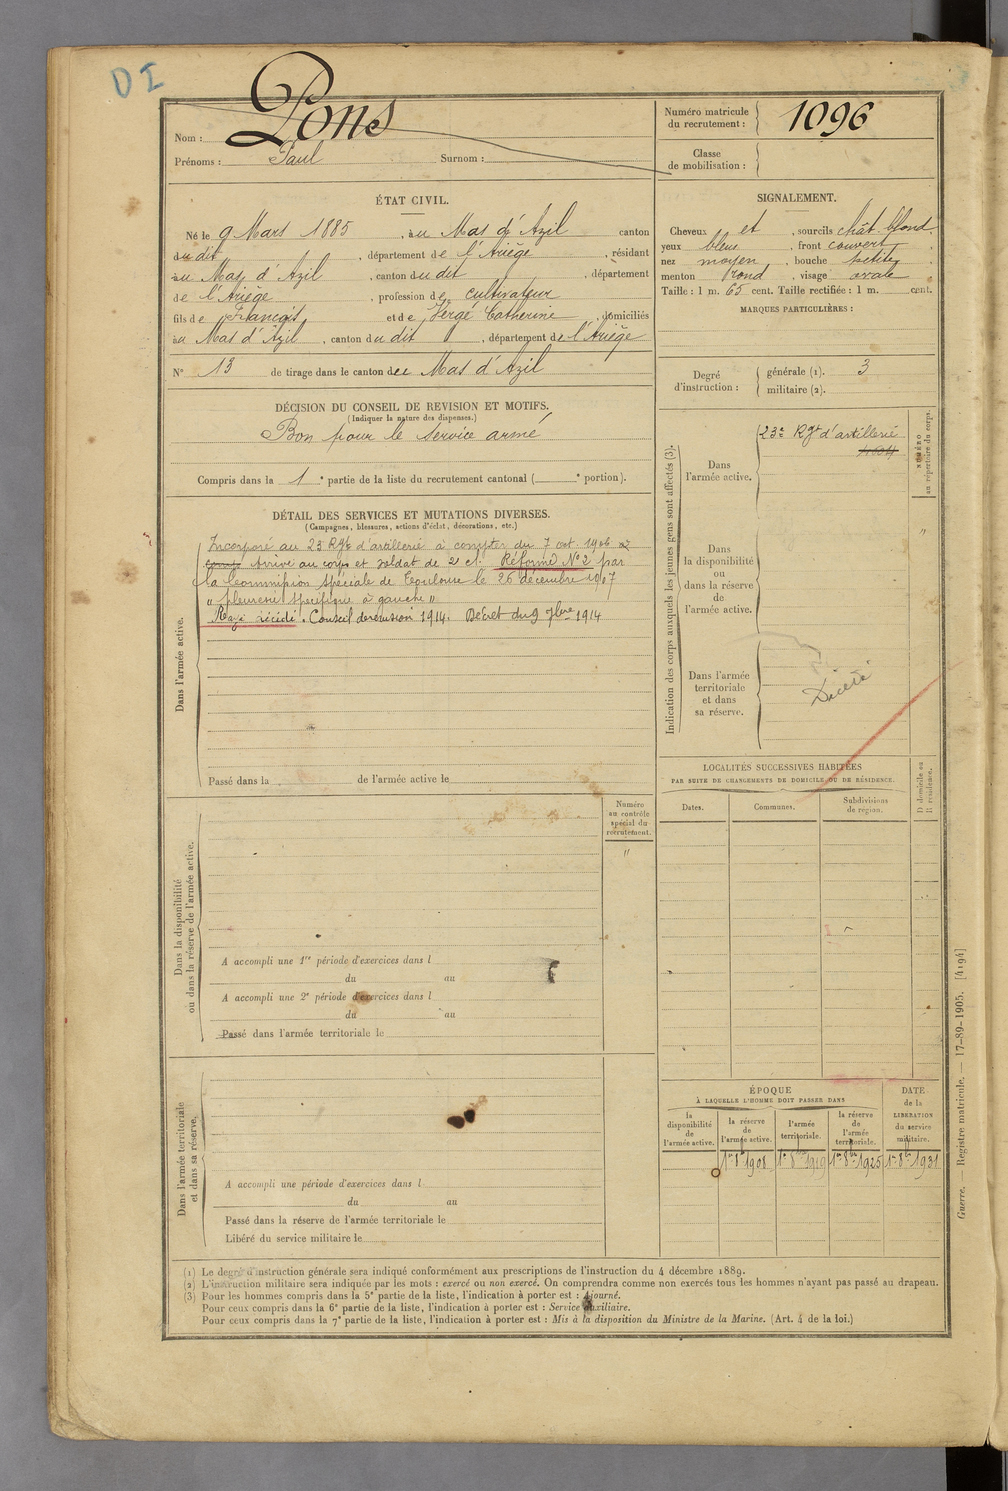 DI
Nom : Pons
Prénoms : Paul Surnom :
Numéro matricule du recrutement : 1096
Classe de mobilisation :
ÉTAT CIVIL.
Né le 9 Mars 1885, au Mas d'Azil canton
du dit, département de l'Ariège, résidant
au Mas d'Azil, canton du dit, département
de l'Ariège, profession de cultivateur
fils de François et de Vergé Catherine, domiciliés
au Mas d'Azil, canton du dit, département de l'Ariège
N° 13 de tirage dans le canton du Mas d'Azil
SIGNALEMENT.
Cheveux et, sourcils chât. blond
yeux bleus, front couvert,
nez moyen, bouche petite,
menton rond, visage ovale
Taille : 1 m. 65 cent. Taille rectifiée : 1 m. cent.
MARQUES PARTICULIÈRES :
Degré d'instruction : générale (1). 3
militaire (2).
DÉCISION DU CONSEIL DE REVISION ET MOTIFS.
(Indiquer la nature des dispenses.)
Bon pour le service armé
Compris dans la 1e partie de la liste du recrutement cantonal ( e portion).
DÉTAIL DES SERVICES ET MUTATIONS DIVERSES.
(Campagnes, blessures, actions d'éclat, décorations, etc.)
Dans l'armée active.
Incorporé au 23 Rgt d'artillerie à compter du 7 oct. 1906
Arrivé au corps et soldat de 2e cl. Réformé N°2 par
la Commission spéciale de Toulouse le 26 décembre 1907
" pleurésie spécifique à gauche "
Rayé décédé. Conseil de révision 1914. Décret du 9 7bre 1914
Passé dans la de l'armée active le
Indication des corps auxquels les jeunes gens sont affectés (3).
NUMÉRO au répertoire du corps.
Dans l'armée active.
23e Rgt d'artillerie
Dans la disponibilité ou dans la réserve de l'armée active.
"
Dans l'armée territoriale et dans sa réserve.
Décédé
LOCALITÉS SUCCESSIVES HABITÉES
PAR SUITE DE CHANGEMENTS DE DOMICILE OU DE RÉSIDENCE.
Dates. Communes. Subdivisions de région. D domicile ou R résidence.
Dans la disponibilité ou dans la réserve de l'armée active.
Numéro au contrôle spécial du recrutement.
"
A accompli une 1re période d'exercices dans l
du au
A accompli une 2e période d'exercices dans l
du au
Passé dans l'armée territoriale le
Dans l'armée territoriale et dans sa réserve.
A accompli une période d'exercices dans l
du au
Passé dans la réserve de l'armée territoriale le
Libéré du service militaire le
ÉPOQUE
À LAQUELLE L'HOMME DOIT PASSER DANS
la disponibilité de l'armée active. la réserve de l'armée active. l'armée territoriale. la réserve de l'armée territoriale.
DATE de la LIBÉRATION du service militaire.
1er 8bre 1908 1er 8bre 1919 1er 8bre 1925 1er 8bre 1931
(1) Le degré d'instruction générale sera indiqué conformément aux prescriptions de l'instruction du 4 décembre 1889.
(2) L'instruction militaire sera indiquée par les mots : exercé ou non exercé. On comprendra comme non exercés tous les hommes n'ayant pas passé au drapeau.
(3) Pour les hommes compris dans la 5e partie de la liste, l'indication à porter est : Ajourné.
Pour ceux compris dans la 6e partie de la liste, l'indication à porter est : Service auxiliaire.
Pour ceux compris dans la 7e partie de la liste, l'indication à porter est : Mis à la disposition du Ministre de la Marine. (Art. 4 de la loi.)
Guerre. — Registre matricule. — 17-89-1905. [4194]